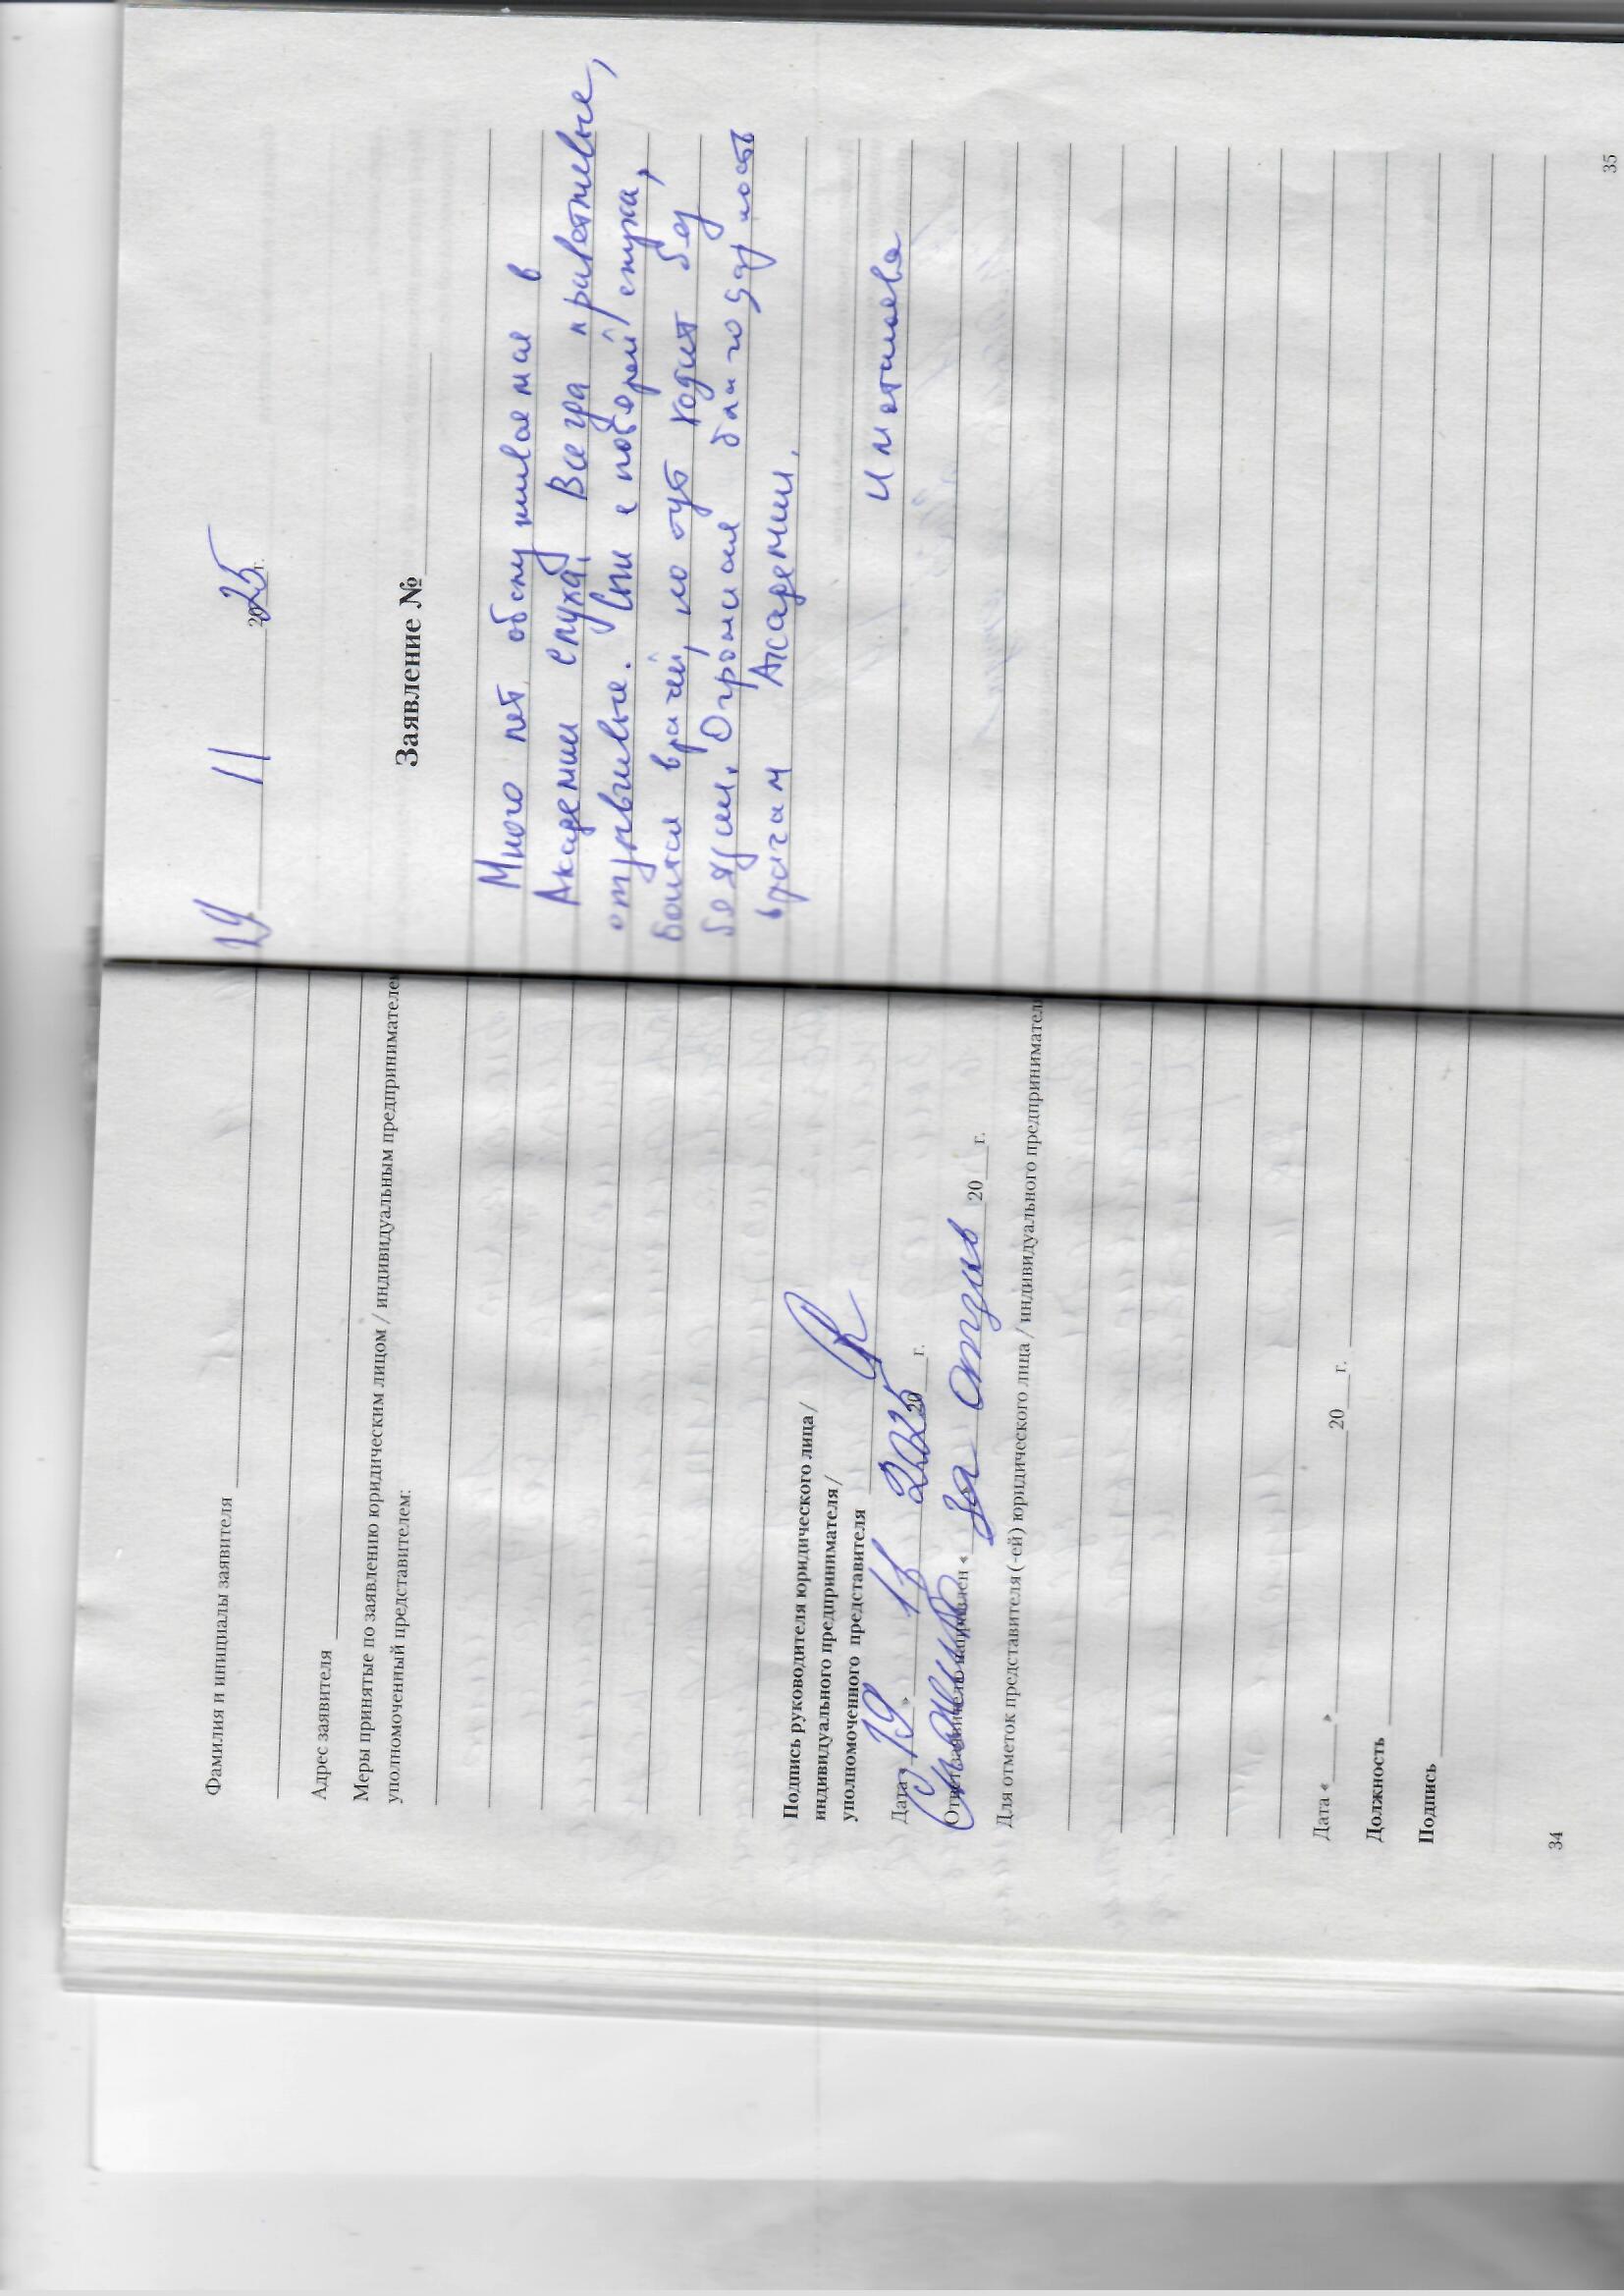 Фамилия и инициалы заявителя
Адрес заявителя
Меры принятые по заявлению юридическим лицом / индивидуальным предпринимателе
уполномоченный представителем:
Подпись руководителя юридического лица /
индивидуального предпринимателя /
уполномоченного представителя
Дата « 19 » 11 2025 20 г.
Ответ заявителю направлен « 20 г.
Спасибо за отзыв
Для отметок представителя (-ей) юридического лица / индивидуального предпринимател
Дата « » 20 г.
Должность
Подпись
34
11 2025 г.
Заявление №
Много лет обслуживаемся в
Академии слуха. Всегда приветливые,
отзывчивые. Сын с потерей слуха,
боится врачей, но тут ходит без
боязни. Огромная благодарность
врачам Академии.
35